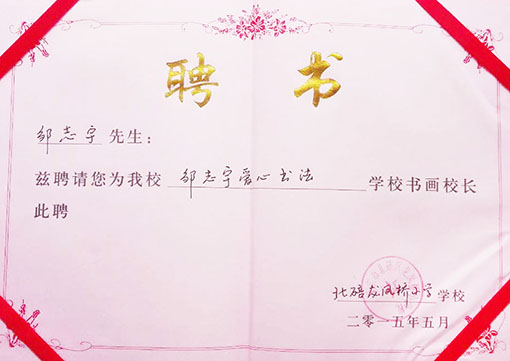 聘 书
邹志宇 先生：
兹聘请您为我校 邹志宇爱心书法 学校书画校长
此聘
北碚龙凤桥小学学校
二零一五年五月